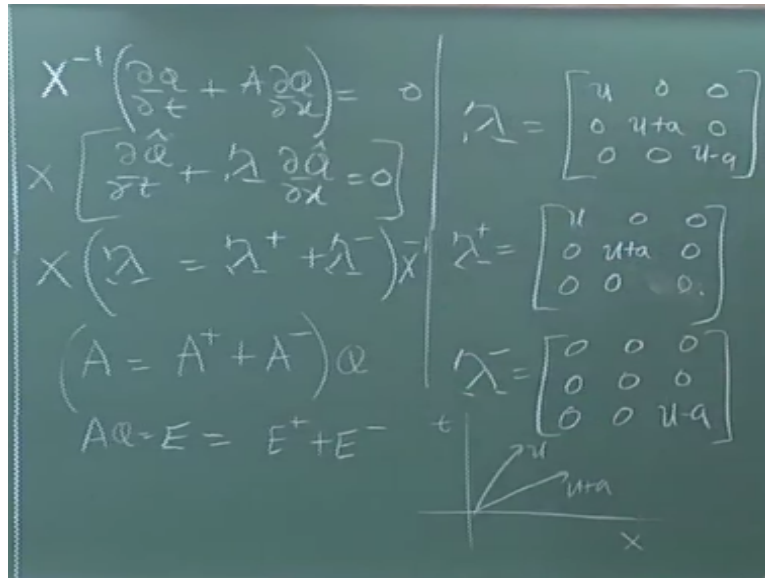 X⁻¹(∂Q/∂t + A ∂Q/∂x) = 0
X[∂Q̂/∂t + λ ∂Q̂/∂x = 0]
X(λ = λ⁺ + λ⁻)X⁻¹
(A = A⁺ + A⁻)Q
AQ = E = E⁺ + E⁻
λ = [u 0 0
0 u+a 0
0 0 u-a]
λ⁺ = [u 0 0
0 u+a 0
0 0 0.]
λ⁻ = [0 0 0
0 0 0
0 0 u-a]
t
u
u+a
x